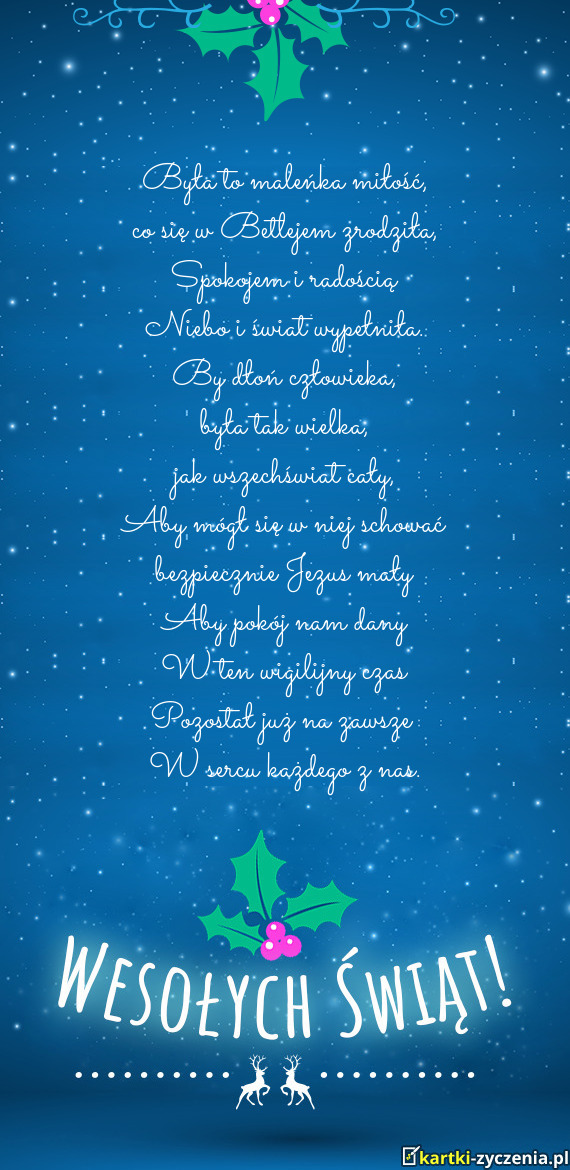 Była to maleńka miłość,
co się w Betlejem zrodziła,
Spokojem i radością
Niebo i świat wypełniła.
By dłoń człowieka,
była tak wielka,
jak wszechświat cały,
Aby mógł się w niej schować
bezpiecznie Jezus mały
Aby pokój nam dany
W ten wigilijny czas
Pozostał już na zawsze
W sercu każdego z nas.
Wesołych Świąt!
kartki-zyczenia.pl